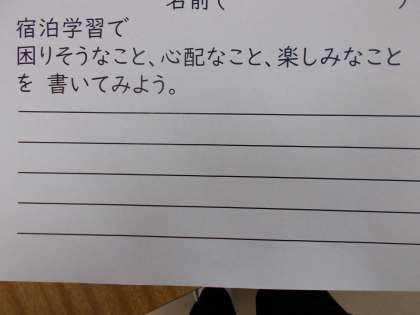 名前(　)
宿泊学習で
困りそうなこと、心配なこと、楽しみなこと
を 書いてみよう。